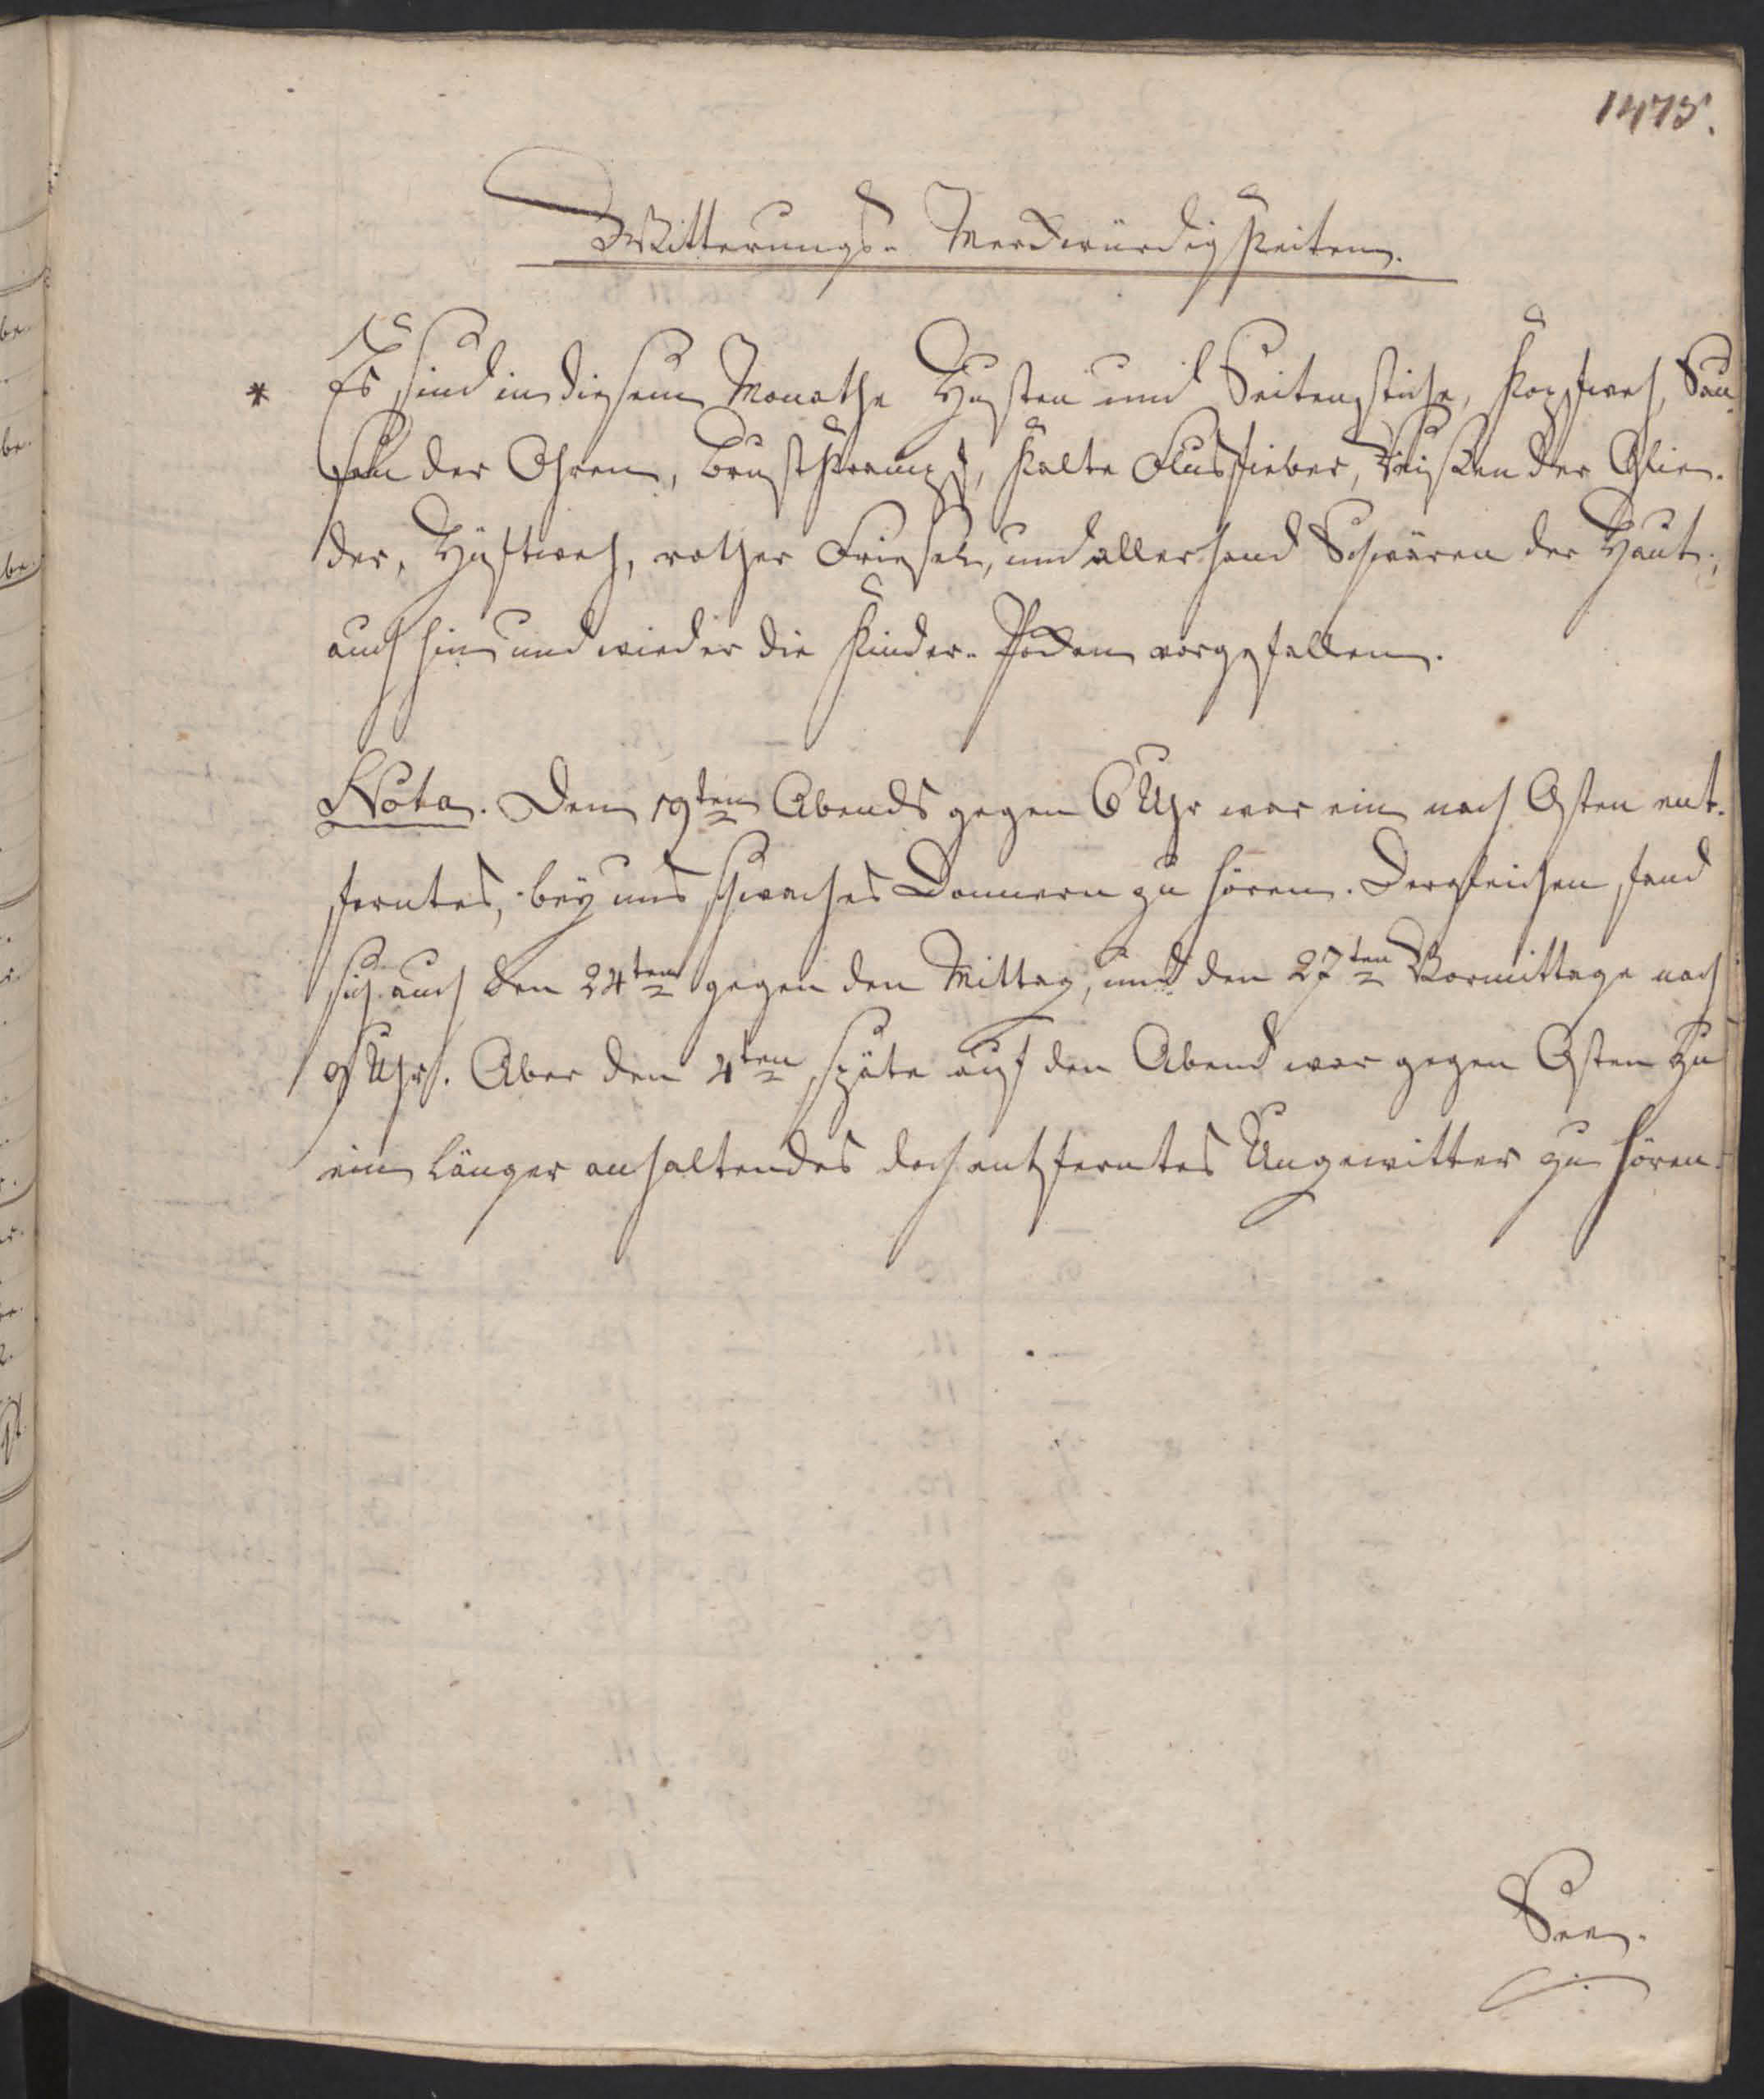 1475.
Witterungs- Merckwürdigkeiten.
* Es sind in diesem Monathe Husten und Seitenstiche, Kopfweh, Sau-
sen der Ohren, Brustkrampf, kalte Flusfieber, Reißen der Glie-
der, Hüftweh, rother Friesel, und allerhand Schwären der Haut,
auch hin und wieder die Kinder-Pocken vorgefallen.
Nota. Den 19ten Abends gegen 6 Uhr war ein nach Osten ent-
ferntes, bey uns schwaches Donnern zu hören. Dergleichen fand
sich auch den 24ten gegen den Mittag, und den 27ten Vormittage nach
9 Uhr. Aber den 4ten späte auf den Abend war gegen Osten zu
ein länger anhaltendes doch entferntes Ungewitter zu hören.